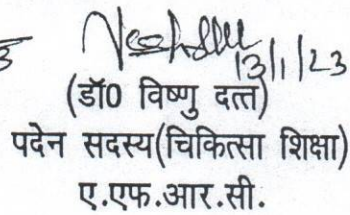 13/1/23
(डॉ0 विष्णु दत्त)
पदेन सदस्य(चिकित्सा शिक्षा)
ए.एफ.आर.सी.